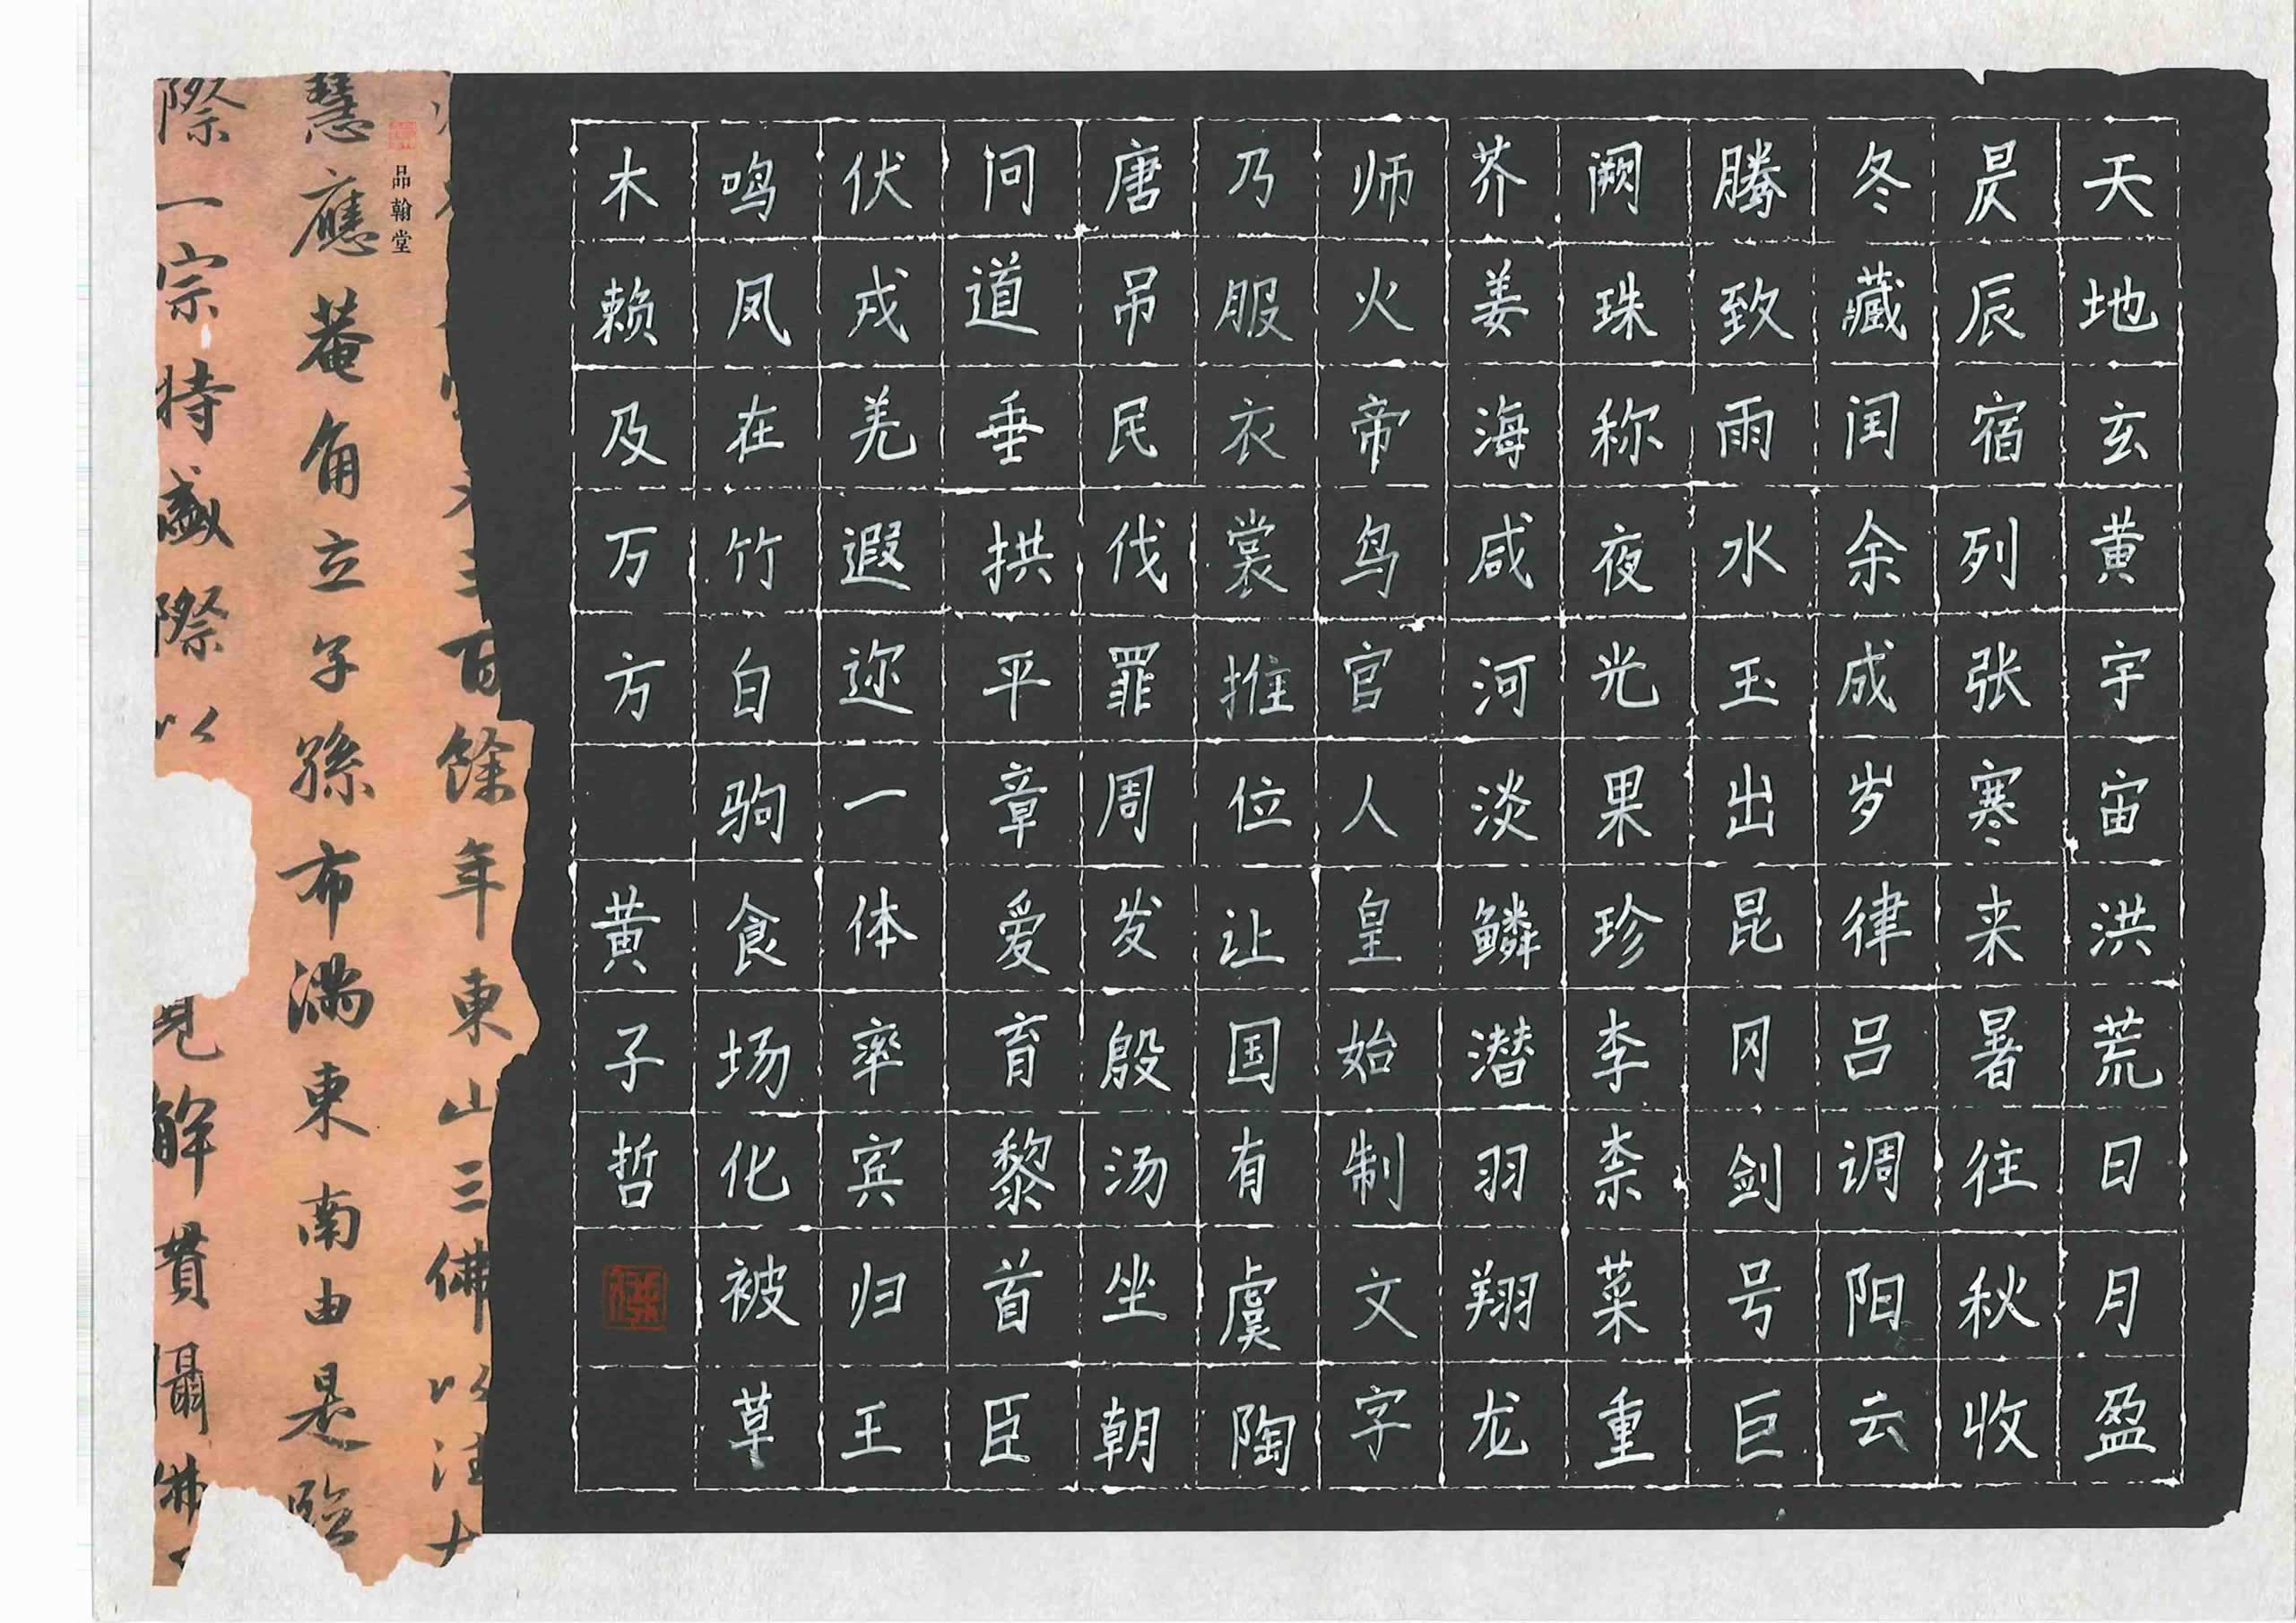 天地玄黄宇宙洪荒日月盈
昃辰宿列张寒来暑往秋收
冬藏闰余成岁律吕调阳云
腾致雨水玉出昆冈剑号巨
阙珠称夜光果珍李柰菜重
芥姜海咸河淡鳞潜羽翔龙
师火帝鸟官人皇始制文字
乃服衣裳推位让国有虞陶
唐吊民伐罪周发殷汤坐朝
问道垂拱平章爱育黎首臣
伏戎羌遐迩一体率宾归王
鸣凤在竹白驹食场化被草
木赖及万方 黄子哲
百餘年東山三佛以法
品翰堂
慧應菴角立子孫布滿東南由是臨
際一宗特盛際以 見解貫攝佛